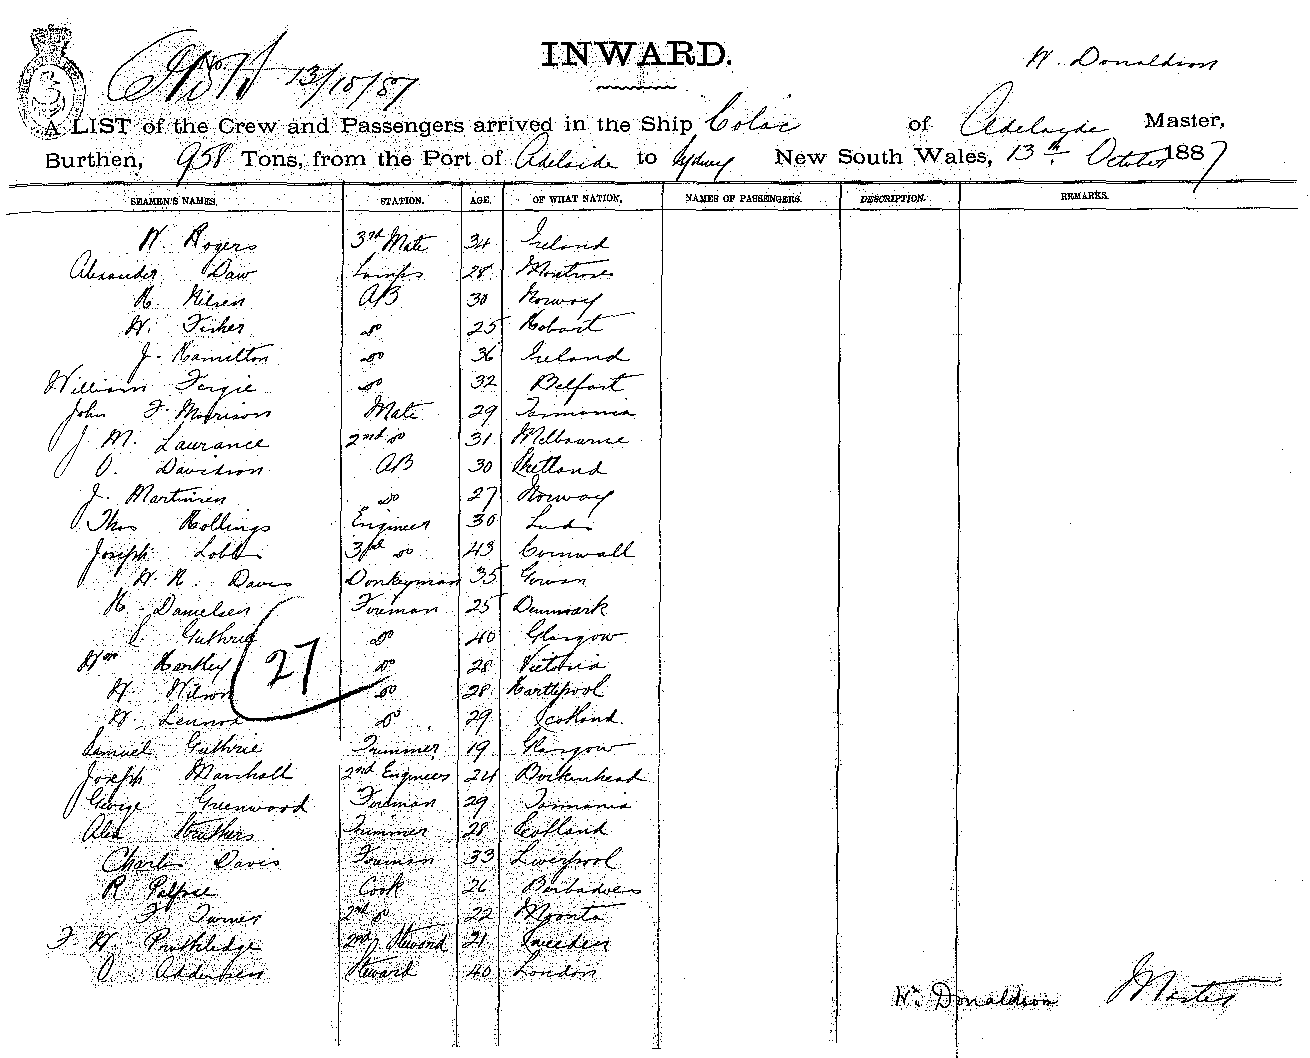 13/10/87
INWARD.
W. Donaldson
A LIST of the Crew and Passengers arrived in the Ship Colac of Adelayde Master,
Burthen, 958 Tons, from the Port of Adelaide to Sydney New South Wales, 13th October 1887
SEAMEN'S NAMES. STATION. AGE. OF WHAT NATION, NAMES OF PASSENGERS. DESCRIPTION. REMARKS.
W. Rogers 3rd Mate 34 Ireland
Alexander Daw Lamps 28 Montrose
H. Nilsen AB 30 Norway
W. Fisher do 25 Hobart
J. Hamilton do 36 Ireland
William Fergie do 32 Belfast
John F. Morrison Mate 29 Tasmania
J. M. Lawrance 2nd do 31 Melbourne
O. Davidson AB 30 Shetland
J. Martinsen do 27 Norway
Thos Hollings Engineer 30
Joseph 3rd do 43 Cornwall
W. H. Davis Donkeyman 35
H. Danielsen Fireman 25 Denmark
Guthrie do 40 Glasgow
27
Wm Hankey do 28 Victoria
W. Wilson do 28 Hartlepool
W Lennox do 29 Scotland.
Samuel Guthrie Trimmer 19 Glasgow
Joseph Marshall 2nd Engineer 24 Birkenhead
George Greenwood Fireman 29 Tasmania
Alex Struthers Trimmer 28 Scotland
Charles Davis Fireman 33 Liverpool
R Cook 26 Barbadoes
F Turner 2nd do 22 Moonta
F. W. Ruthledge 2nd Steward 21 Sweeden
O. Steward 40 London
Wm Donaldson Master